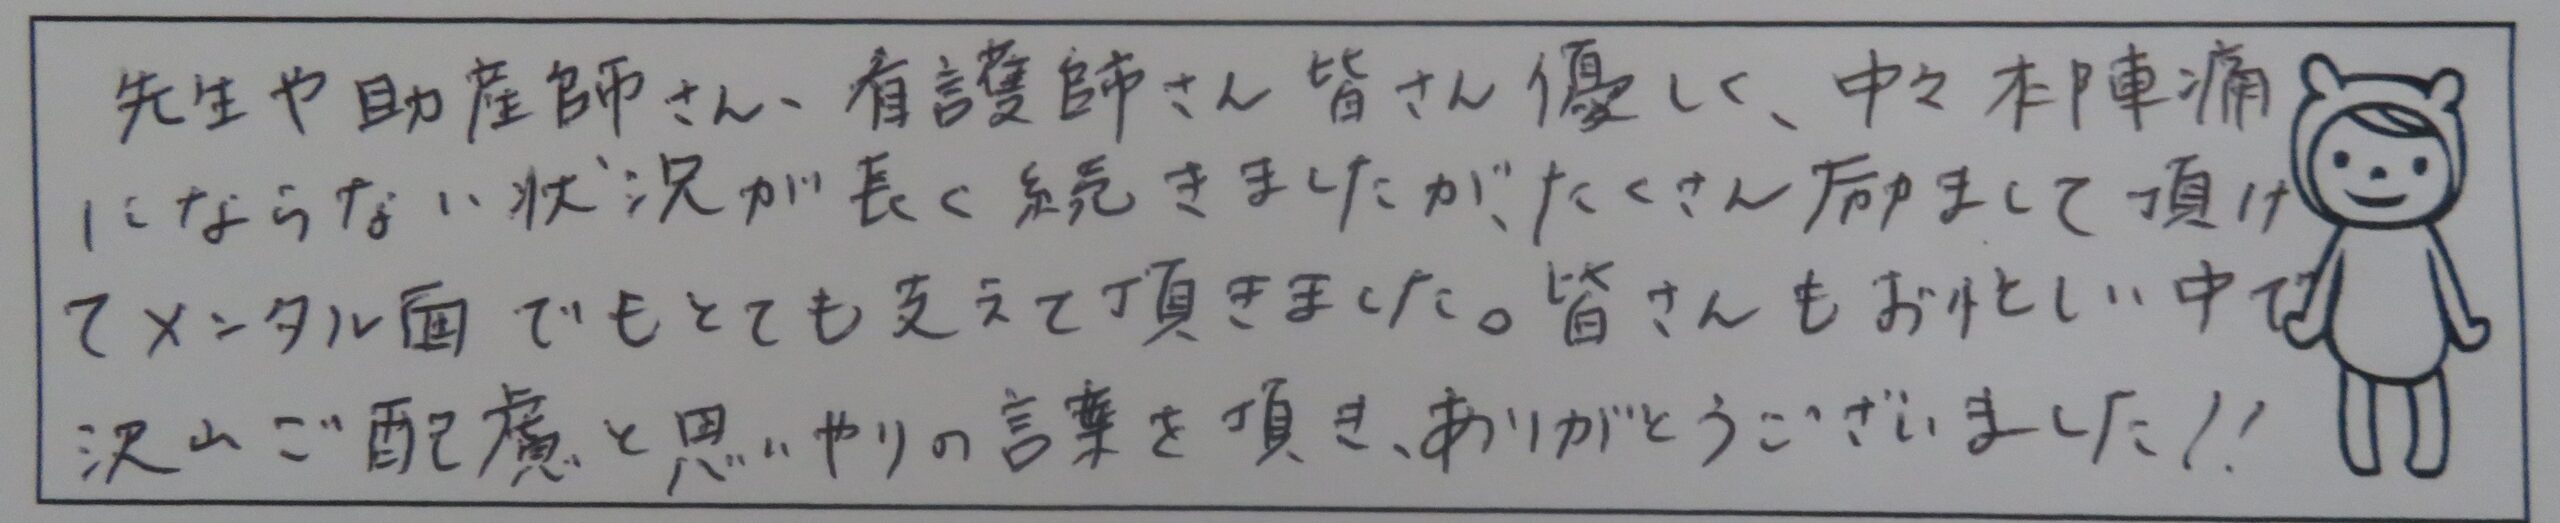 先生や助産師さん、看護師さん皆さん優しく、中々本陣痛
にならない状況が長く続きましたが、たくさん励まして頂け
てメンタル面でもとても支えて頂きました。皆さんもお忙しい中で
沢山ご配慮と思いやりの言葉を頂き、ありがとうございました!!